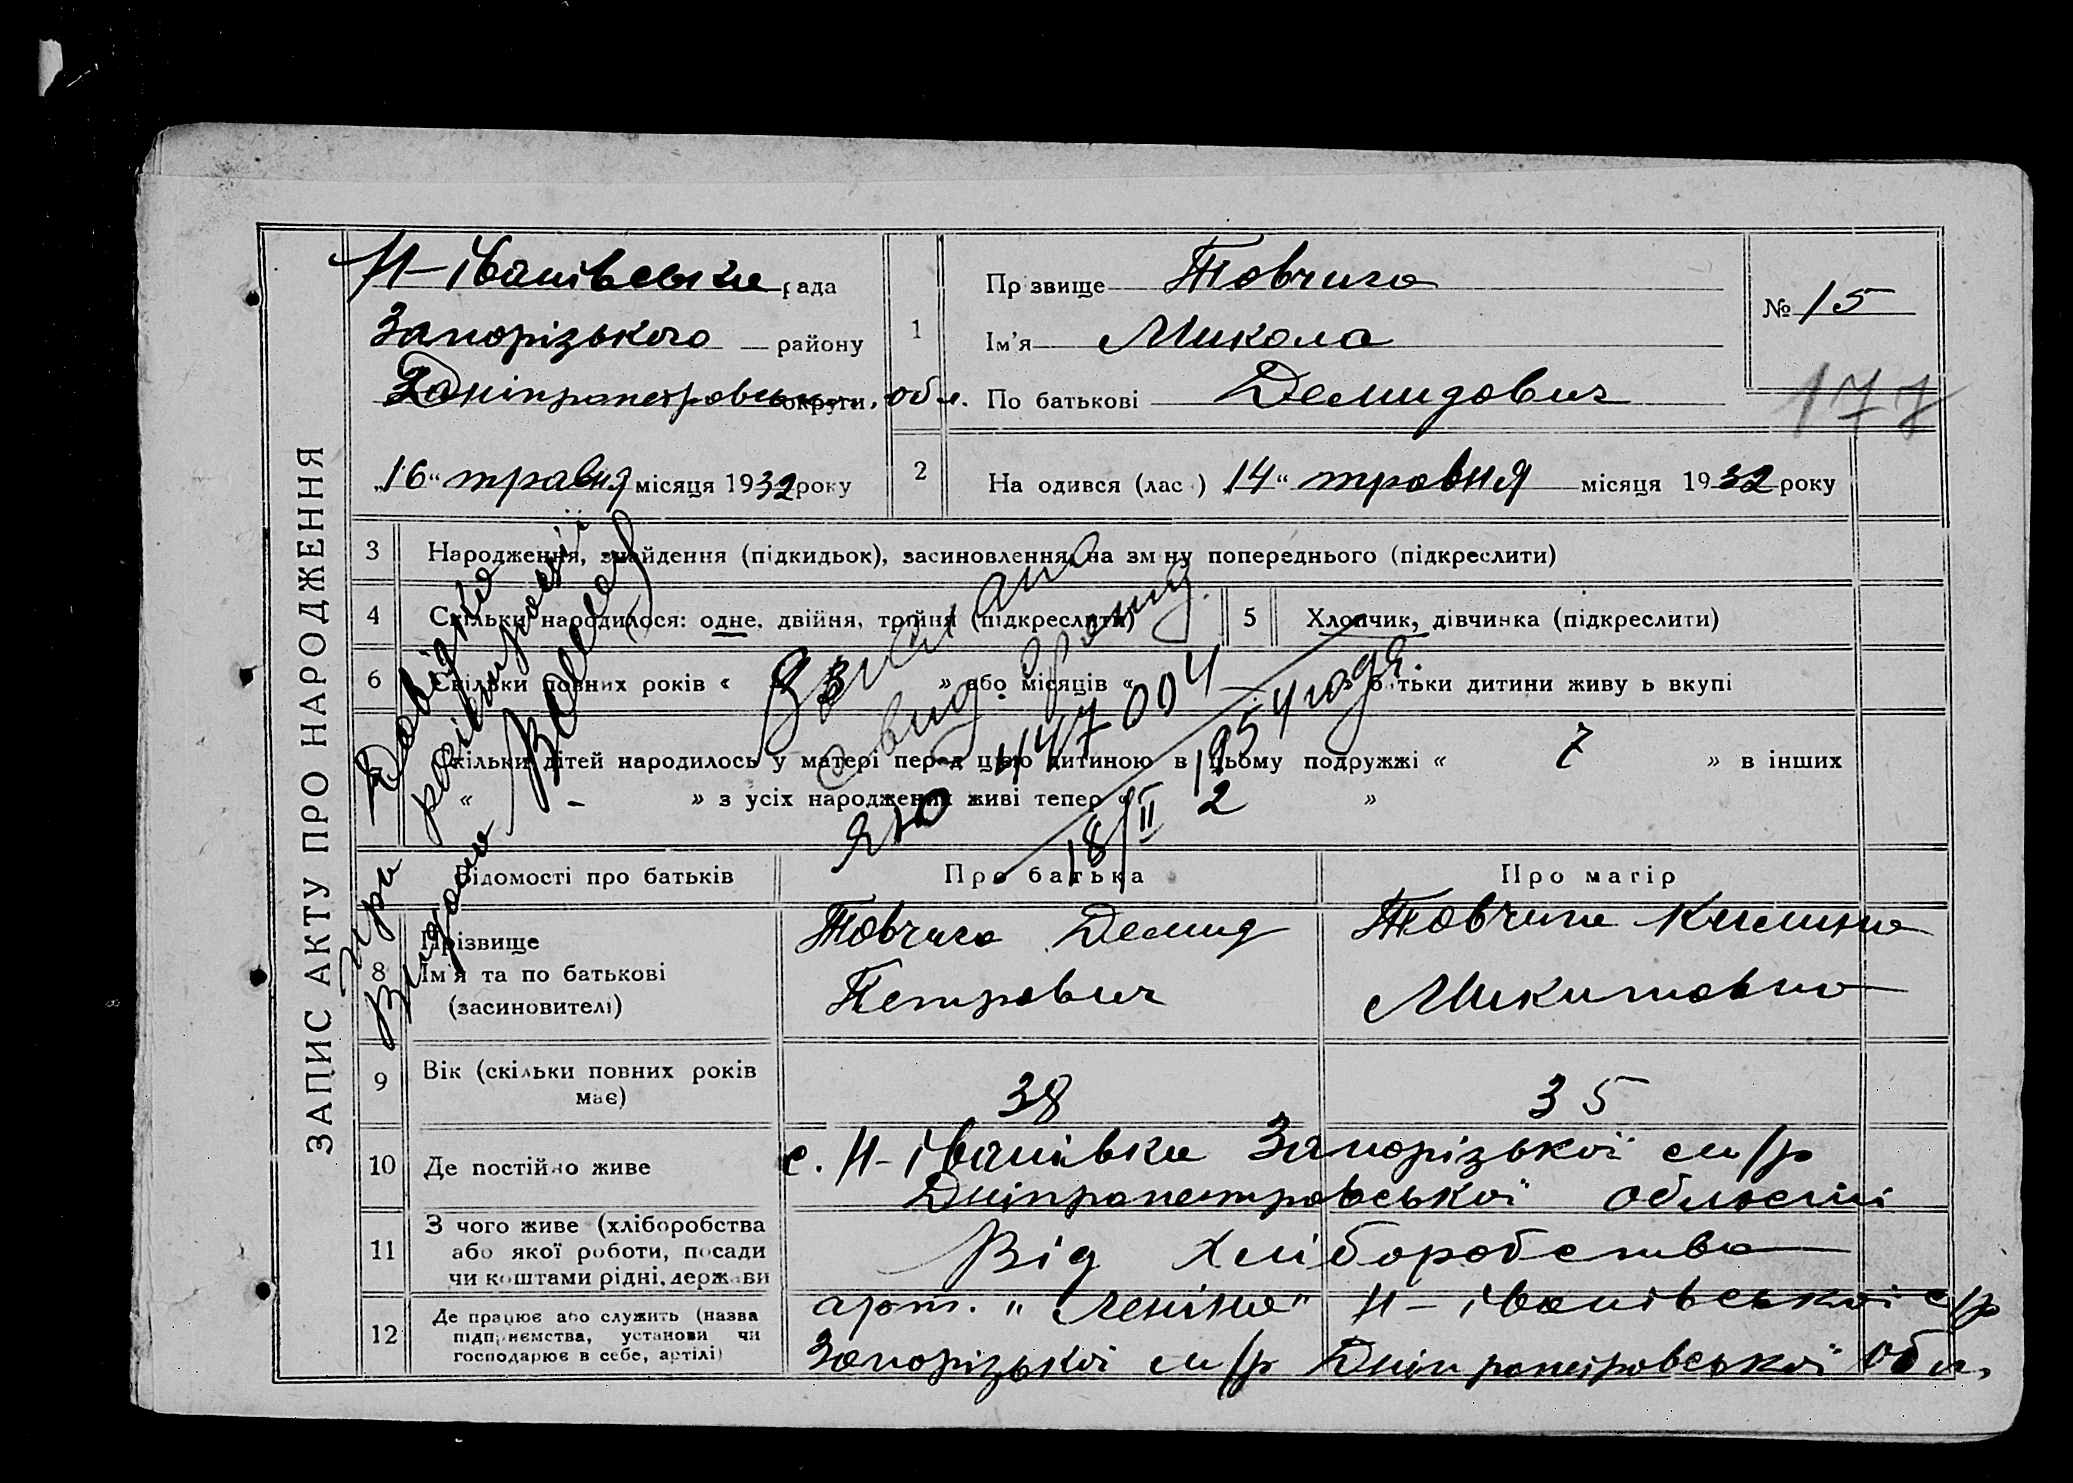 ЗАПИС АКТУ ПРО НАРОДЖЕННЯ
Н-Іванівська рада
Запорізького району
Дніпропетровськ округи, обл.
„16“ травня місяця 1932 року
1
Прізвище Товчига
Ім'я Микола
По батькові Демидович
№ 15
177
2 На одився (лас ) „14“ травня місяця 1932 року
3 Народження, знайдення (підкидьок), засиновлення, на зм ну попереднього (підкреслити)
4 Скільки народилося: одне, двійня, тройня (підкреслити)
5 Хлопчик, дівчинка (підкреслити)
6 Скільки повних років « » або місяців « б тьки дитини живу ь вкупі
7 Скільки дітей народилось у матері перед цією дитиною в цьому подружжі « 7 » в інших
« - » з усіх народжених живі тепер « 2 »
Довідка
при реєстрації
Видано
свид.
ЯЮ 447004
18/II 1954 года.
Відомості про батьків Про батька Про матір
8 Прізвище
Ім'я та по батькові
(засиновителі)
Товчига Демид
Петрович
Товчига Килина
Микитовна
9 Вік (скільки повних років має) 38 35
10 Де постійно живе с. Н-Іванівка Запорізької м/р
Дніпропетровської області
11 З чого живе (хліборобства
або якої роботи, посади
чи коштами рідні, держави
Від хліборобства
12 Де працює або служить (назва
підприємства, установи чи
господарює в себе, артілі)
арт. „Леніна“ Н-Іванівської с/р
Запорізької м/р Дніпропетровської обл.